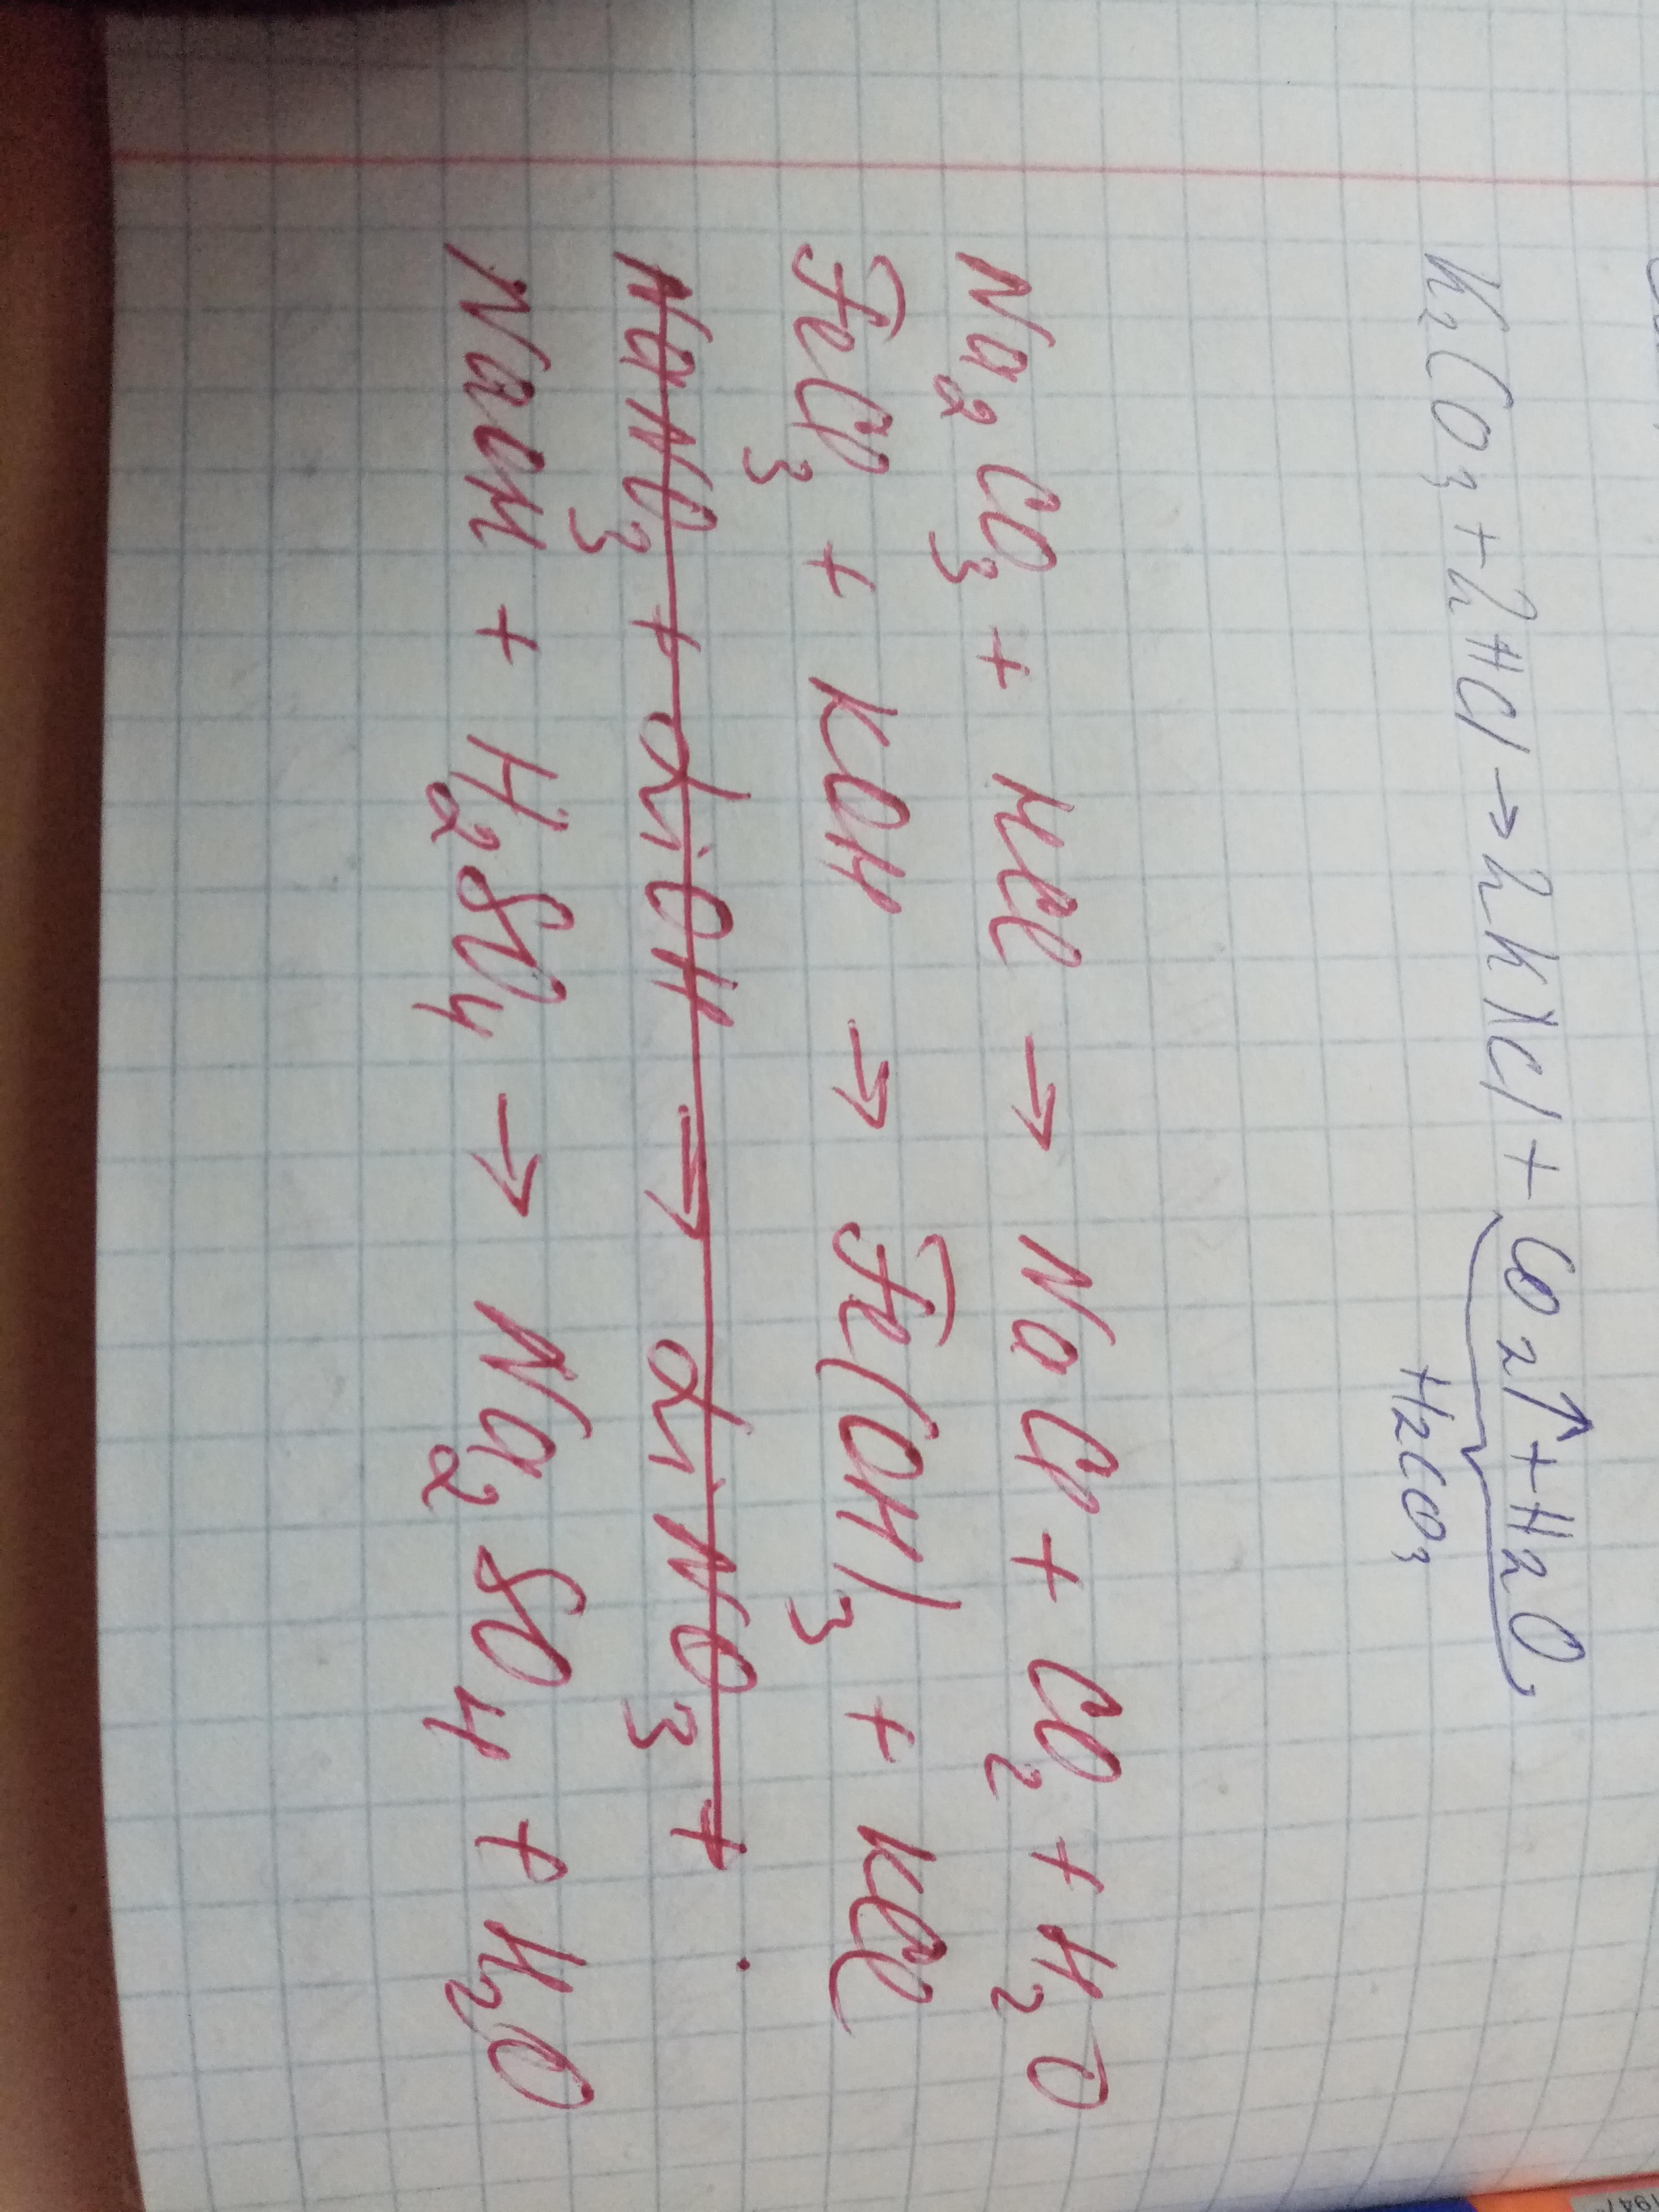 K₂CO₃ + 2HCl → 2KCl + CO₂↑ + H₂O
H₂CO₃
Na₂CO₃ + HCl → NaCl + CO₂ + H₂O
FeCl₃ + KOH → Fe(OH)₃ + KCl
NaNO₃ + LiOH → LiNO₃ +
NaOH + H₂SO₄ → Na₂SO₄ + H₂O